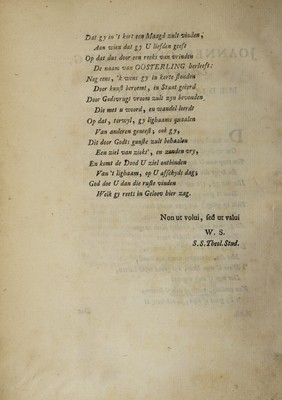 Dat gy in 't kort een Maagd zult vinden,
Aan wien dat gy U liefden geeft
Op dat dus door een reeks van vrinden
De naam van OOSTERLING herleeft:
Nog eens, 'k wens gy in korte stonden
Door kunst beroemt, in Staat geëerd,
Door Godsvrugt vroom zult zyn bevonden
Die met u woord, en wandel leerdt
Op dat, terwyl, gy lighaams quaalen
Van anderen geneest, ook gy,
Dit door Godts gunste zult behaalen
Een ziel van ziekt', en zonden vry,
En komt de Dood U ziel ontbinden
Van 't lighaam, op U affchyds dag,
God doe U dan die ruste vinden
Welk gy reets in Geloov hier zag.
Non ut volui, sed ut valui
W. S.
S.S. Theol. Stud.